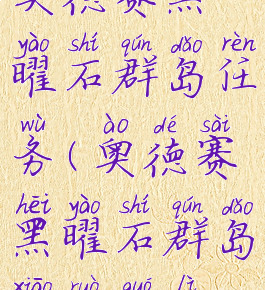 奥德赛黑
yào shí qún dǎo rèn
曜石群岛任
wù ào dé sài
务(奥德赛
hēi yào shí qún dǎo
黑曜石群岛